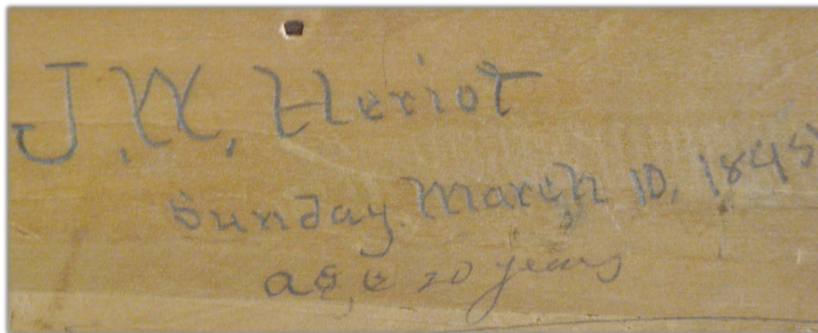 J.W. Heriot
Sunday March 10, 1845
age 20 years